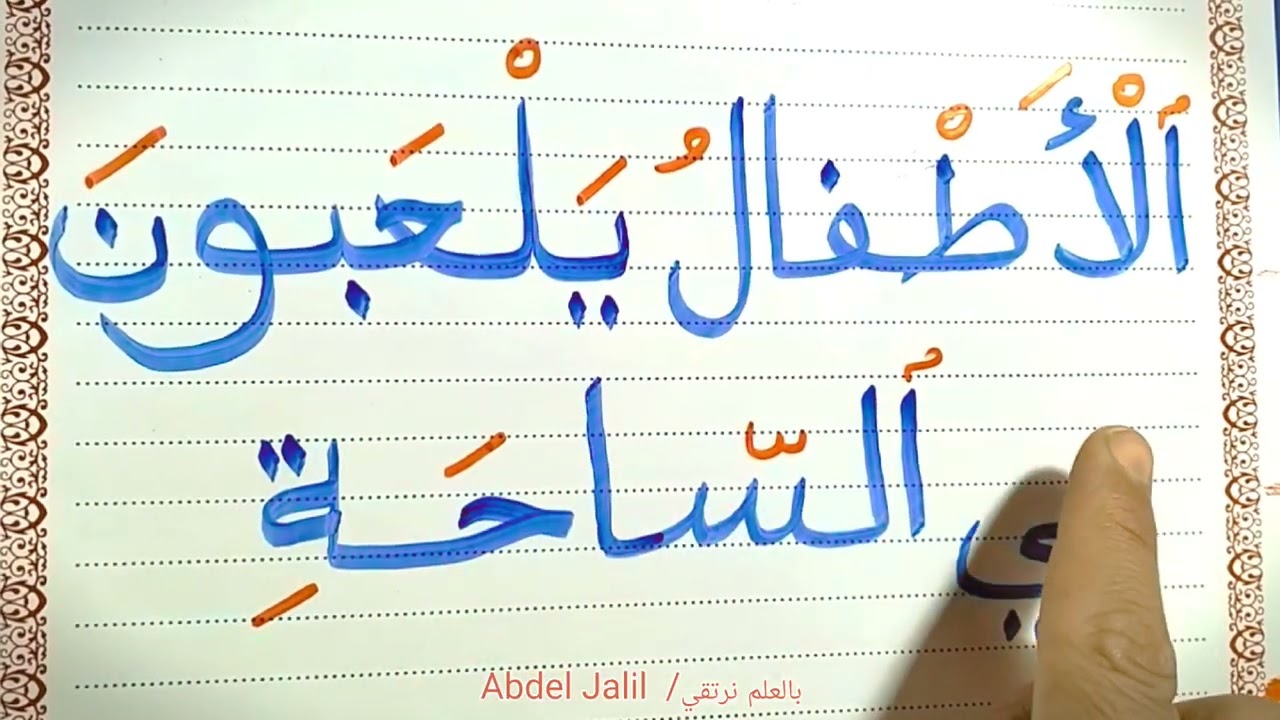 ٱلْأَطْفالُ يَلْعَبونَ
في ٱلسّاحَةِ
Abdel Jalil /بالعلم نرتقي